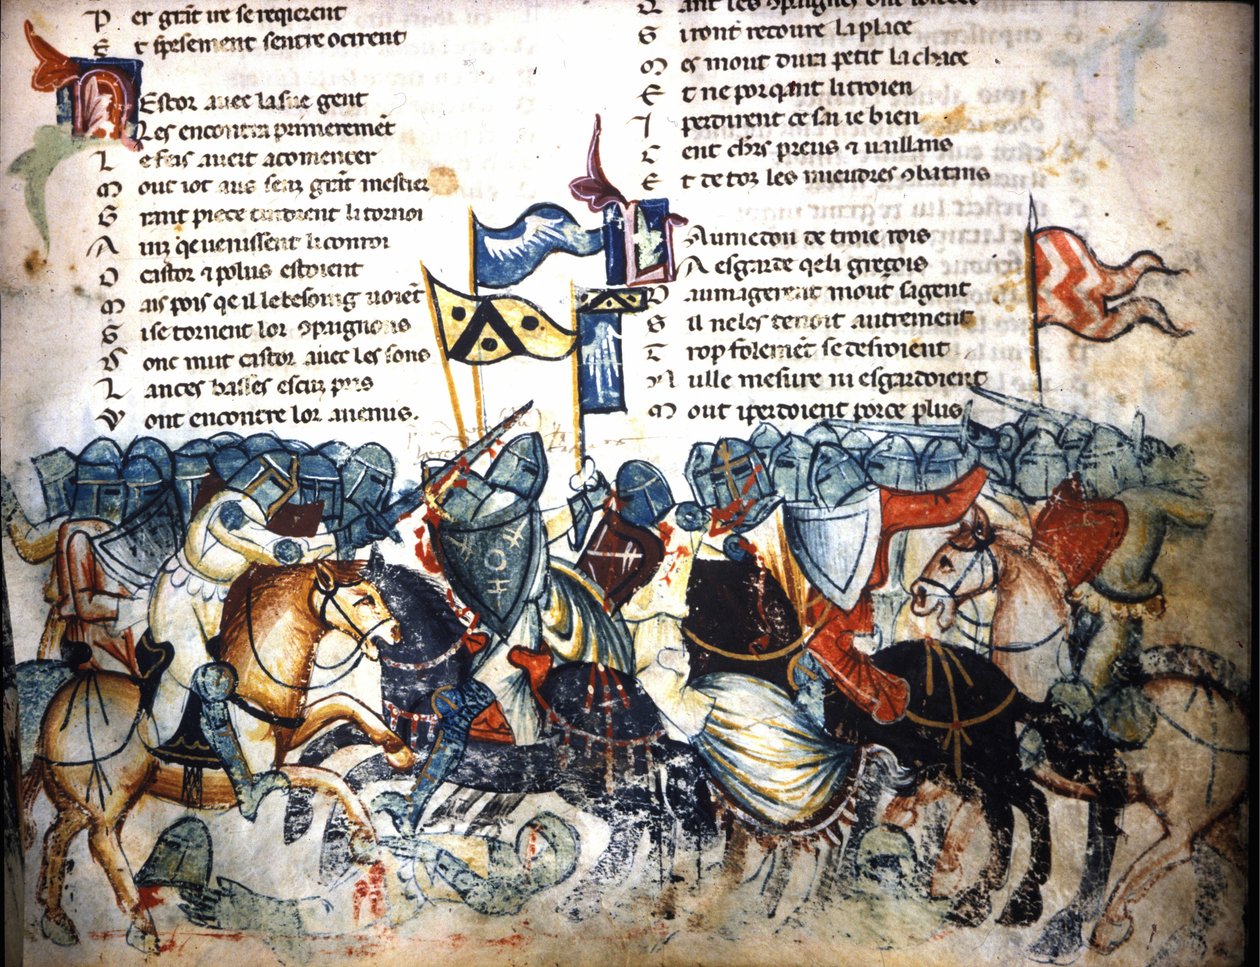 Per grãt ire se reqierent
Et spesement sentre ocirent
Nestor auec la sue gent
Les encontra primeremẽt
Le fais aueit acomencer
Mout iot aus seuz grãt mestier
Grant piece tindrent li tornoi
Ainz qe uenissent li conroi
O castor ⁊ polus estoient
Mais pois qe il le besoing uoiẽt
Gise tornent lor ꝯpaignons
Donc mut castor auec les sons
Lances basses escuz pris
Vont encontre lor anemis.
ant les ꝯpaignes
Giront recoure la place
Mes mout dura petit la chace
Et ne porqant li troien
I perdirent ce sai ie bien
Cent chrs preus ⁊ uaillans
Et de toz les mieudres ꝯbatans
Laumedon de troie rois
Aesgarde qe li gregois
Damagerent mout sa gent
Sil ne les tenoit autrement
Trop folemẽt se desroient
Nulle mesure ni esgardoient
Mout iperdoient porce plus